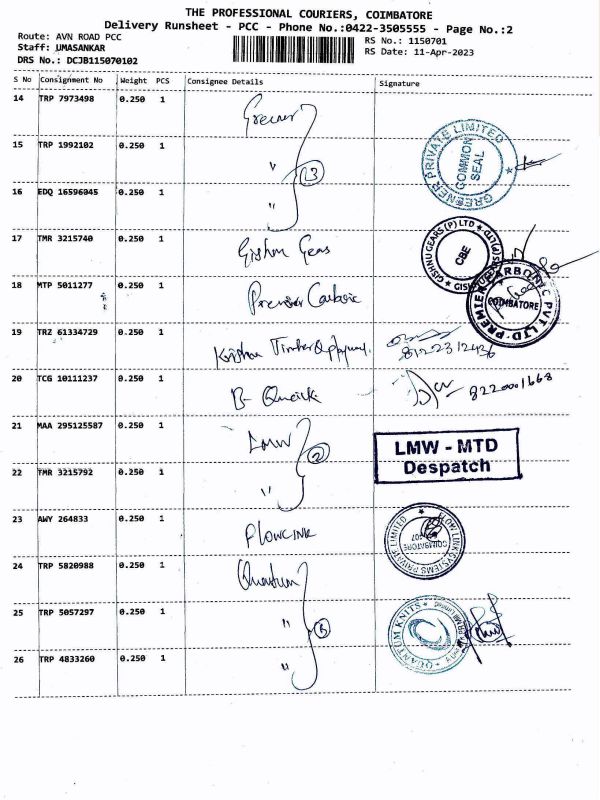 THE PROFESSIONAL COURIERS, COIMBATORE
Delivery Runsheet - PCC - Phone No.:0422-3505555 - Page No.:2
Route: AVN ROAD PCC
RS No.: 1150701
Staff: UMASANKAR
RS Date: 11-Apr-2023
DRS No.: DCJB115070102
S No Consignment No Weight PCS Consignee Details Signature
14 TRP 7973498 0.250 1 Greener
15 TRP 1992102 0.250 1 "
GREENER PRIVATE LIMITED
COMMON
SEAL
16 EDQ 16596045 0.250 1 "
3
17 TMR 3215740 0.250 1 Gishnu Gears
GISHNU GEARS (P) LTD
CBE
18 MTP 5011277 0.250 1 Premier Carbonic
PREMIER CARBONIC PVT LTD
COIMBATORE
19 TRZ 61334729 0.250 1 Krishna Timber & Plywood. 8122312436
20 TCG 10111237 0.250 1 B- Quick 8220001668
21 MAA 295125587 0.250 1 LMW
2
LMW - MTD
Despatch
22 TMR 3215792 0.250 1 "
23 AWY 264833 0.250 1 FLOWLINK
FLOW LINK SYSTEMS PRIVATE LIMITED
COIMBATORE
24 TRP 5820988 0.250 1 Quantum
25 TRP 5057297 0.250 1 "
QUANTUM KNITS
26 TRP 4833260 0.250 1 "